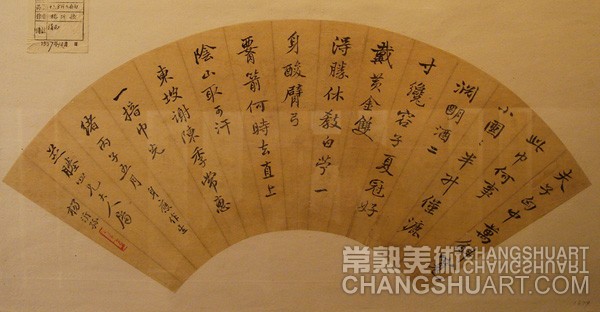 夫子匈中萬
此巾何事
小團〻半升僅漉
淵明酒二
寸纔容子夏冠好
戴黃金雙
得勝休教白苧一
身酸臂弓
要箭何時去直上
陰山取可汗
東坡謝陳季常惠
一揞巾 光
緒丙子五月
四兄大人屬
楊沂孫
常熟美術
CHANGSHUART
CHANGSHUART.COM